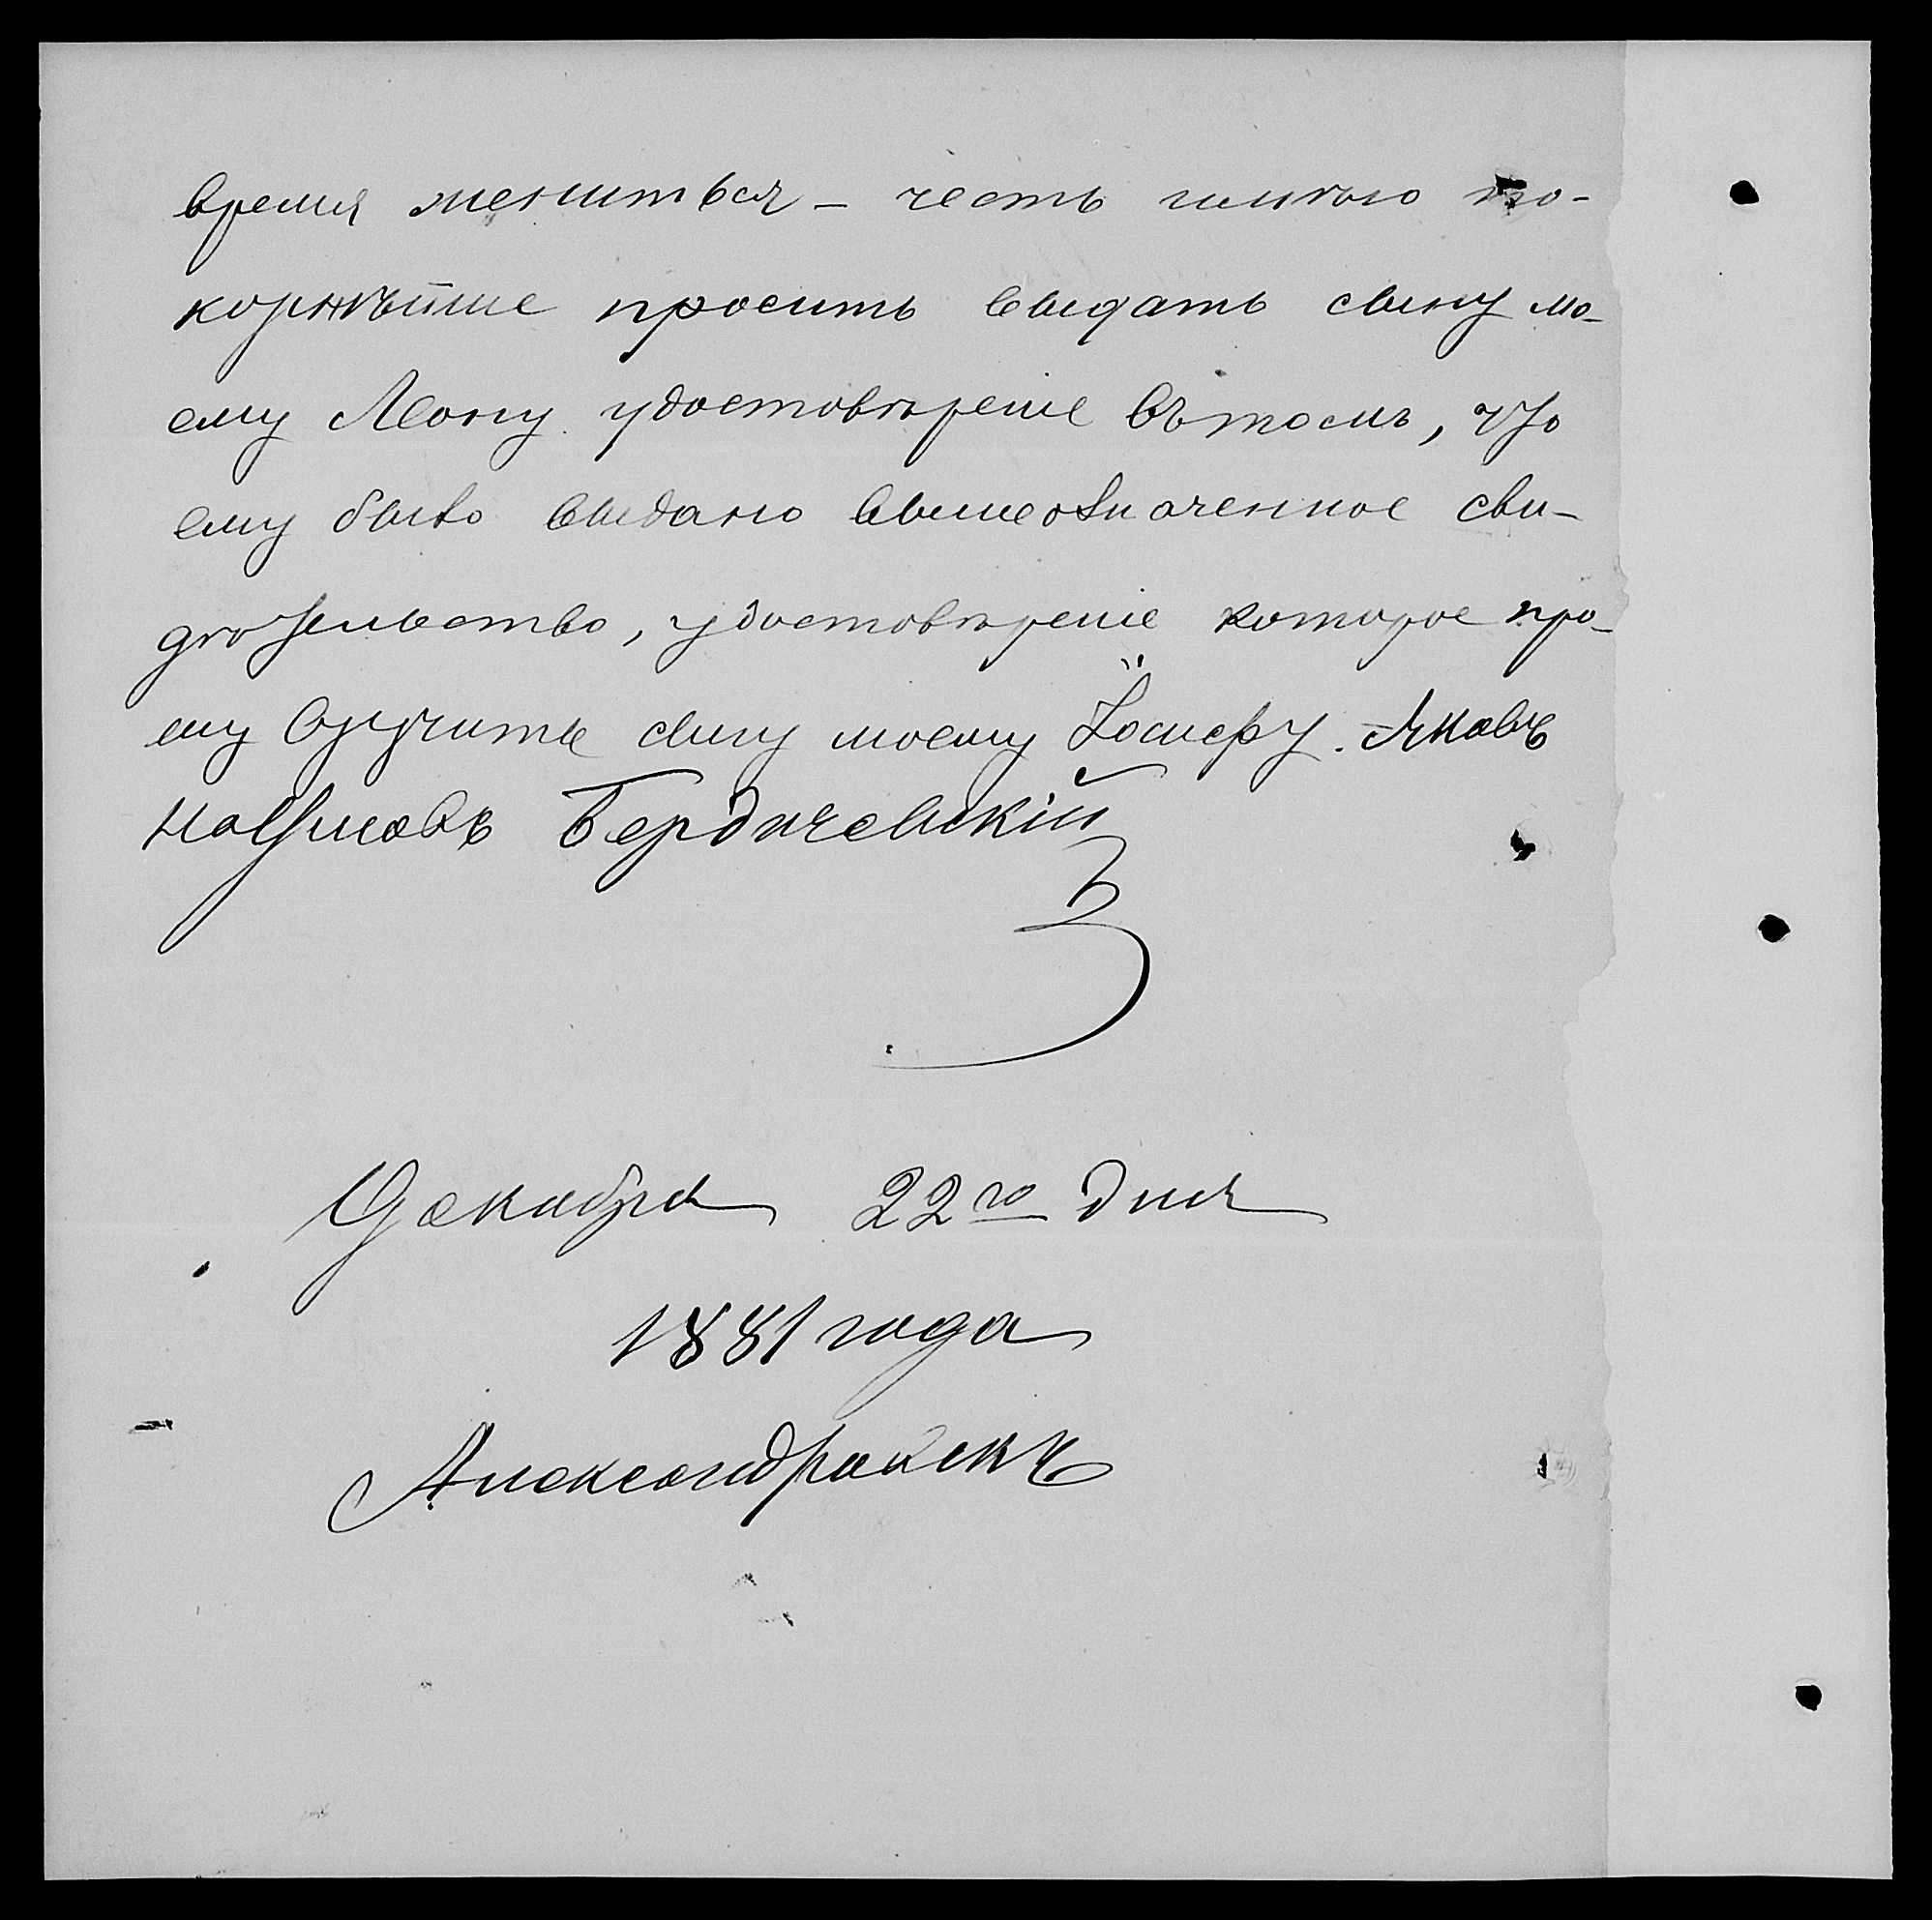 время жениться – честь имѣю по-
корнѣйше просить выдать сыну мо-
ему Леону удостовѣреніе въ томъ, что
ему было выдано вышеозначенное сви-
дѣтельство, удостовѣреніе которое про-
шу вручить сыну моему Іосифу. Яковъ
Бердичевскій
Декабря 22го дня
1881 года
Александровскъ